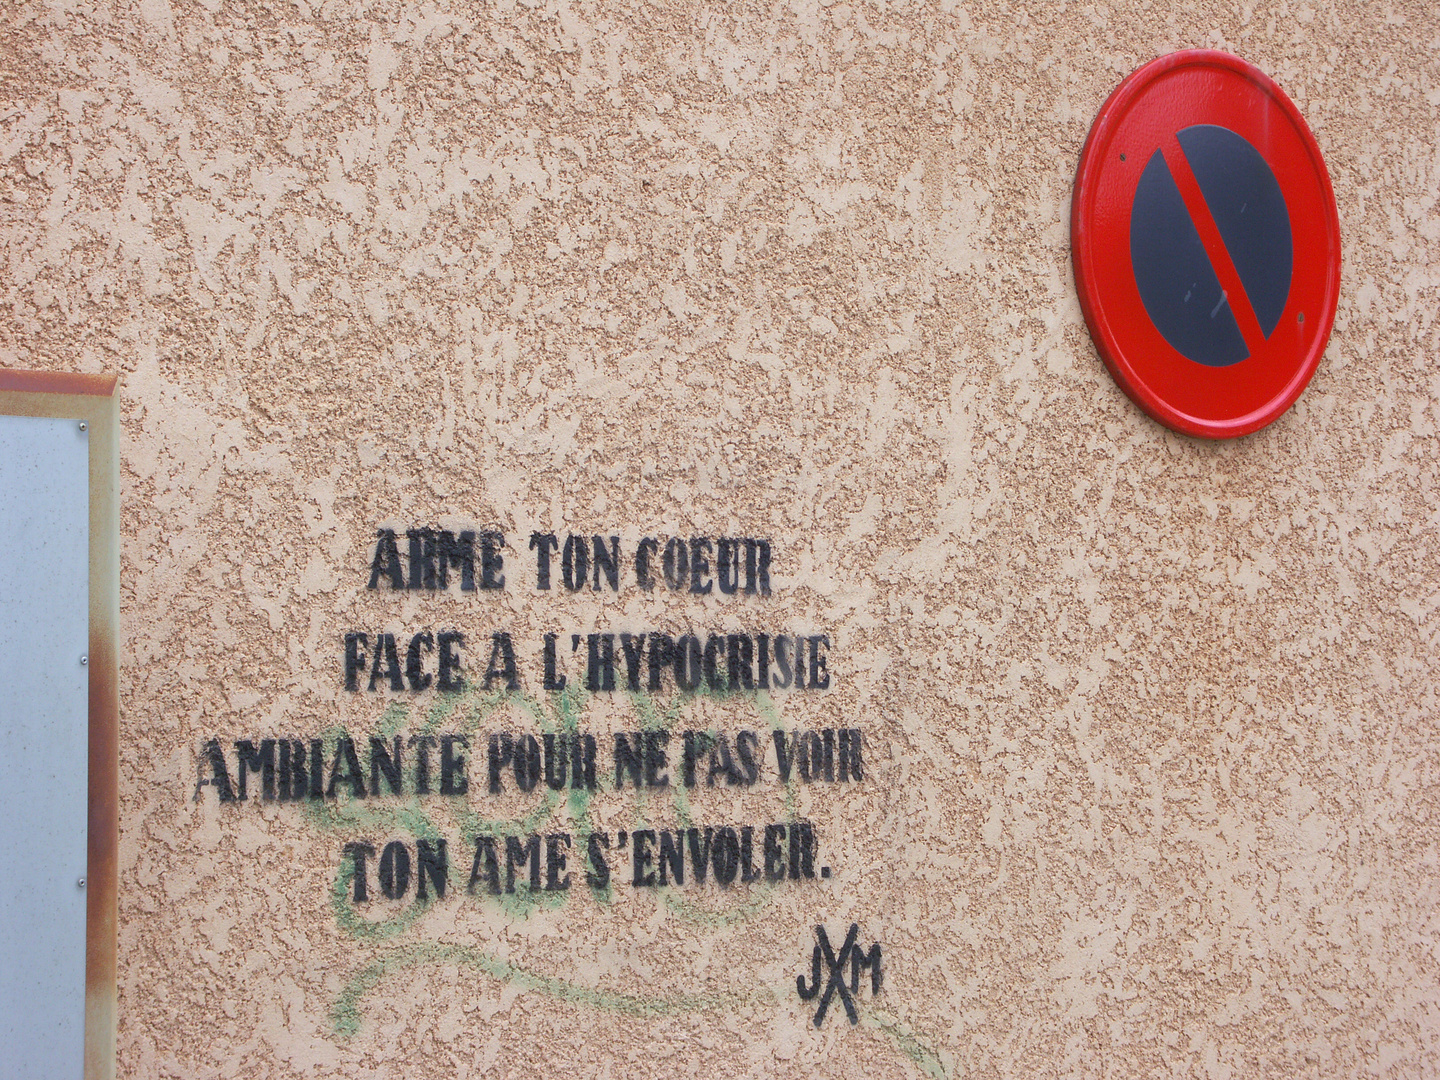 ARME TON COEUR
FACE A L'HYPOCRISIE
AMBIANTE POUR NE PAS VOIR
TON AME S'ENVOLER.
JXM